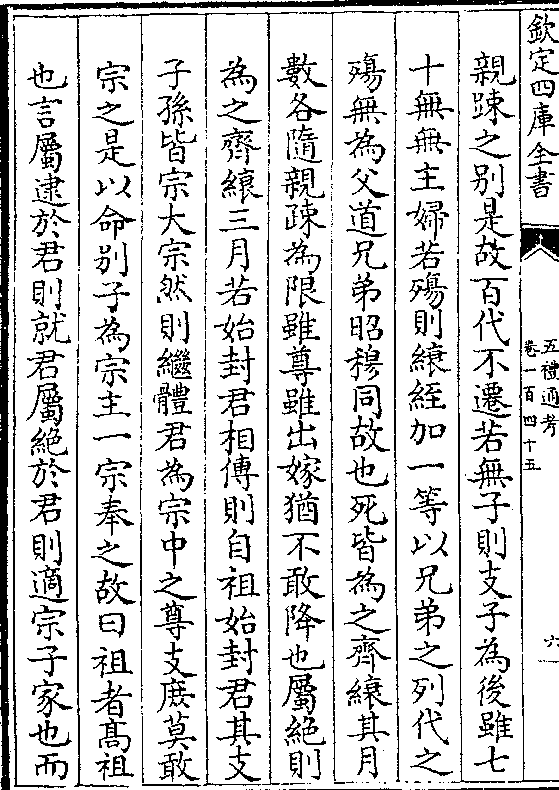 欽定四庫全書
五禮通考
卷一百四十五
六
親踈之别是故百代不遷若無子則支子為後雖七
十無無主婦若殤則縗絰加一等以兄弟之列代之
殤無為父道兄弟昭穆同故也死皆為之齊縗其月
數各隨親疎為限雖尊雖出嫁猶不敢降也屬絶則
為之齊縗三月若始封君相傳則自祖始封君其支
子孫皆宗大宗然則繼體君為宗中之尊支庶莫敢
宗之是以命别子為宗主一宗奉之故曰祖者髙祖
也言屬逮於君則就君屬絶於君則適宗子家也而